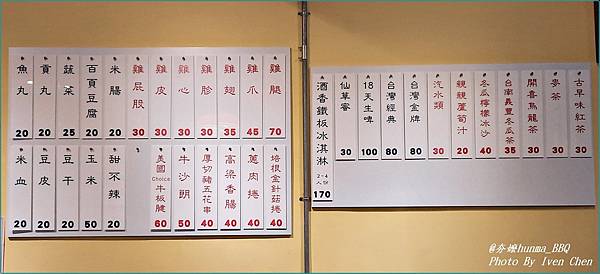 魚丸 20
貢丸 20
蔬菜 25
百頁豆腐 20
米腸 20
雞屁股 30
雞皮 30
雞心 30
雞胗 30
雞翅 35
雞爪 45
雞腿 70
米血 20
豆皮 20
豆干 20
玉米 50
甜不辣 20
美國Choice牛板腱 60
牛沙朗 50
厚切豬五花串 40
高粱香腸 40
蔥肉捲 40
培根金針菇捲 40
酒香鐵板冰淇淋 2-4人份 170
仙草蜜 30
18天生啤 100
台灣經典 80
台灣金牌 80
汽水類 30
親親蘆筍汁 20
冬瓜檸檬冰沙 40
台南義豐冬瓜茶 35
開喜烏龍茶 30
麥茶 30
古早味紅茶 30
@夯嬤hunma_BBQ
Photo By Iven Chen